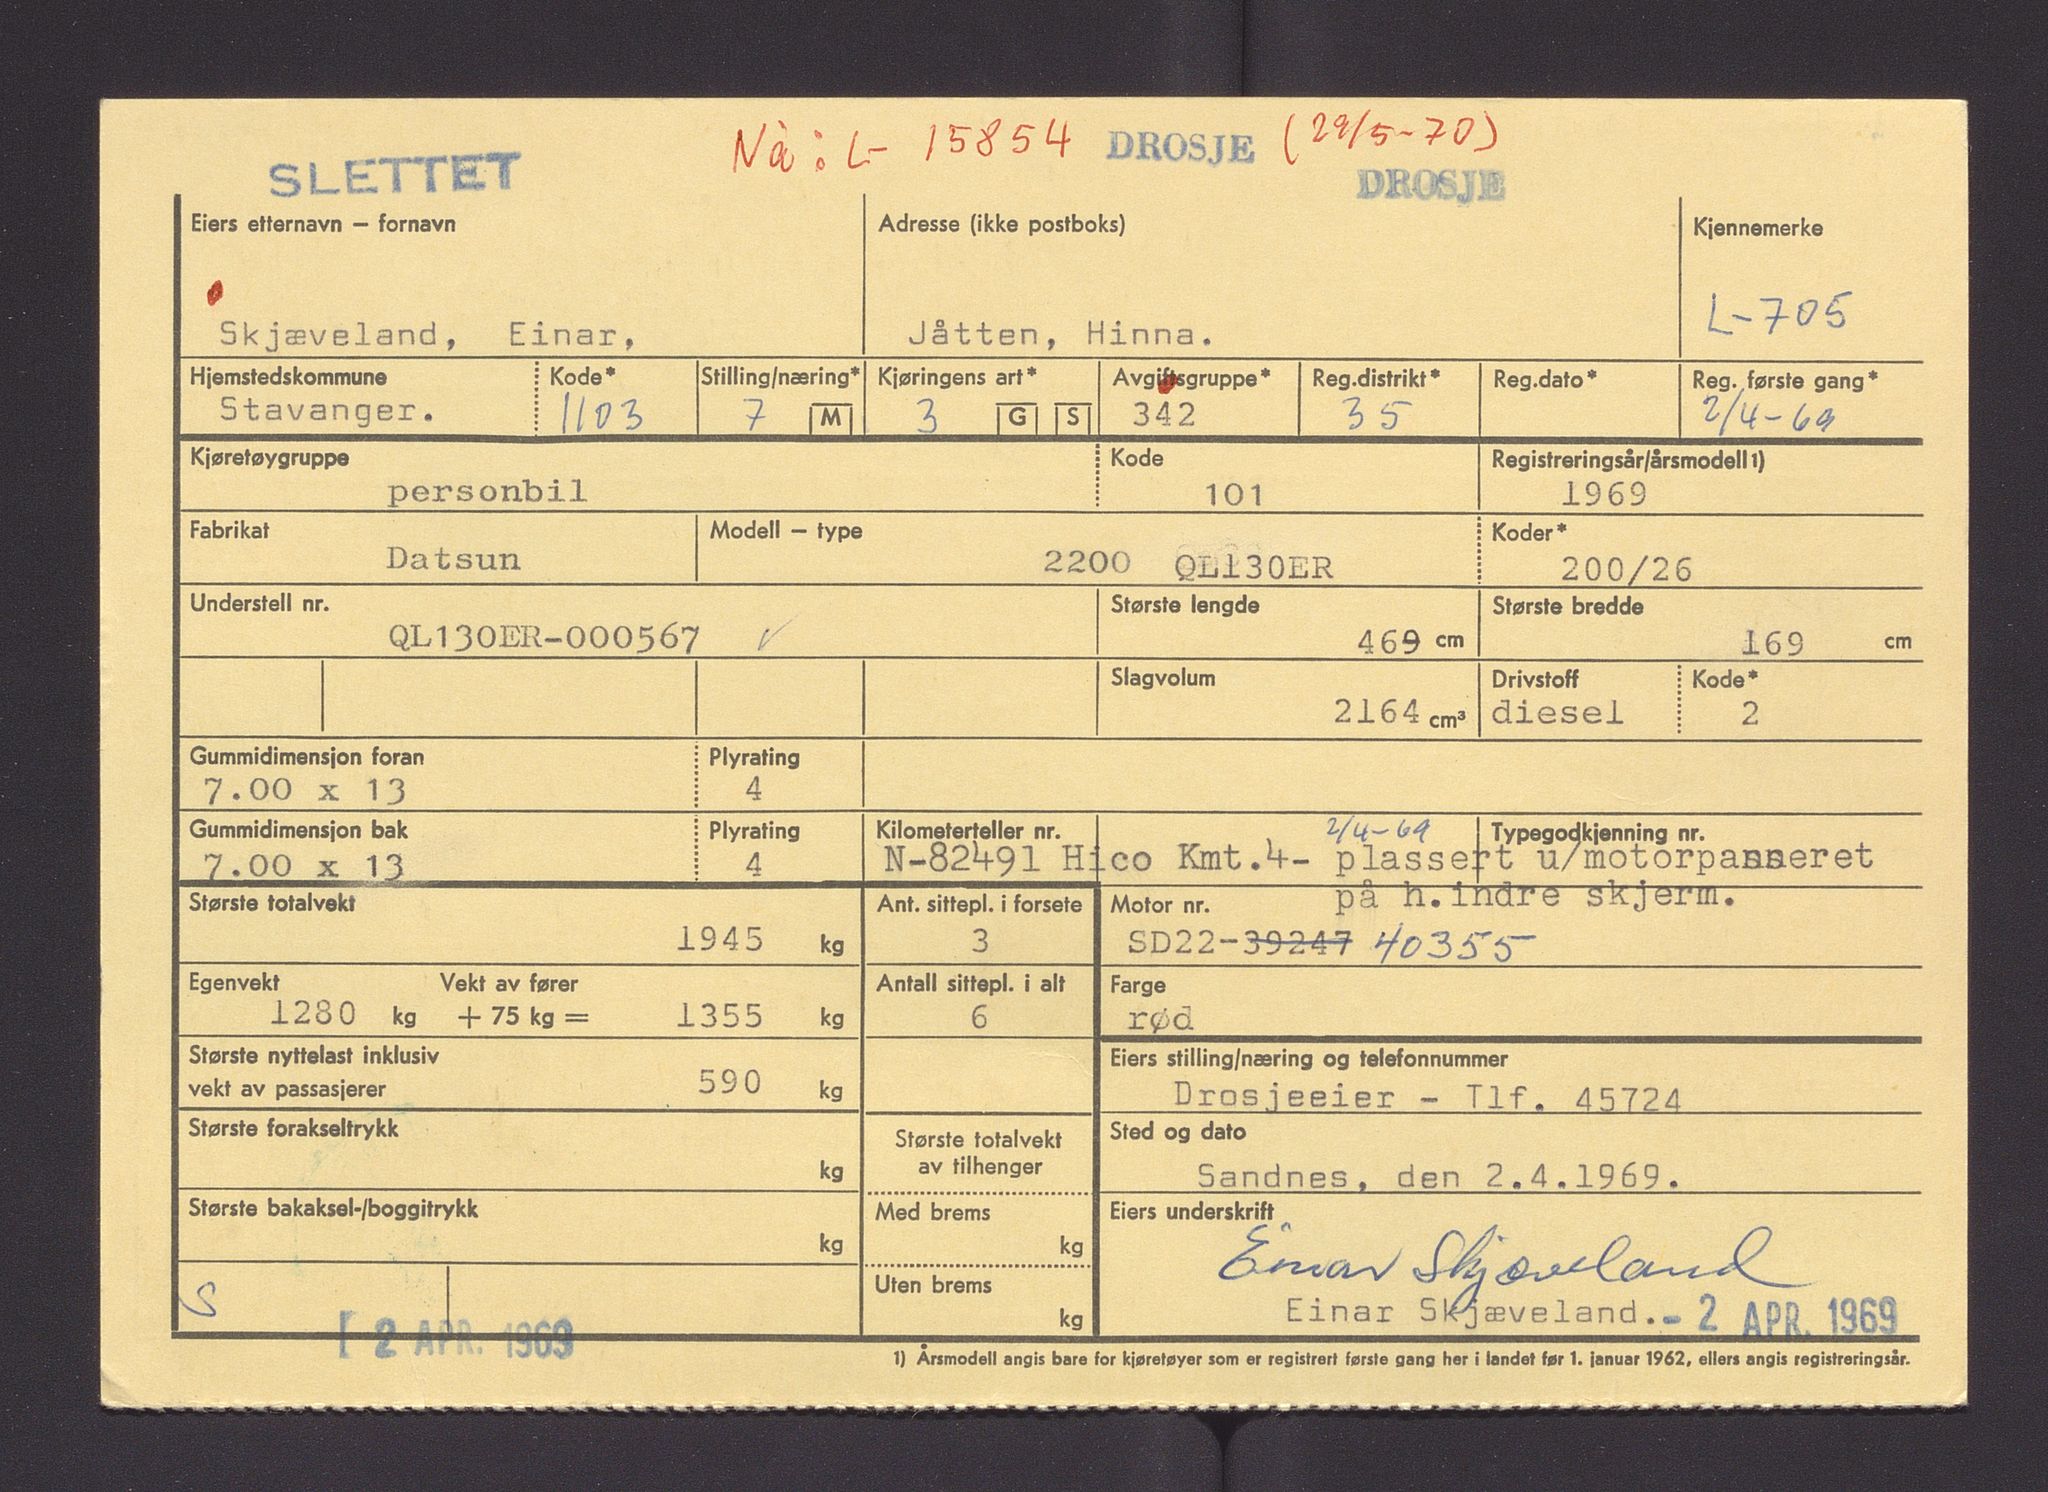 Nå: L- 15854 DROSJE (29/5-70)
SLETTET DROSJE
Eiers etternavn – fornavn Adresse (ikke postboks) Kjennemerke
Skjæveland, Einar, Jåtten, Hinna. L-705
Hjemstedskommune Kode* Stilling/næring* Kjøringens art* Avgiftsgruppe* Reg.distrikt* Reg.dato* Reg. første gang*
Stavanger. 1103 7 M 3 G S 342 35 2/4-69
Kjøretøygruppe Kode Registreringsår/årsmodell1)
personbil 101 1969
Fabrikat Modell – type Koder*
Datsun 2200 QL130ER 200/26
Understell nr. Største lengde Største bredde
QL130ER-000567 ✓ 469 cm 169 cm
Slagvolum Drivstoff Kode*
2164 cm³ diesel 2
Gummidimensjon foran Plyrating
7.00 x 13 4
Gummidimensjon bak Plyrating Kilometerteller nr. 2/4-69 Typegodkjenning nr.
7.00 x 13 4 N-82491 Hico Kmt.4- plassert u/motorpanneret
på h.indre skjerm.
Største totalvekt Ant. sittepl. i forsete Motor nr.
1945 kg 3 SD22-39247 40355
Egenvekt Vekt av fører Antall sittepl. i alt Farge
1280 kg + 75 kg = 1355 kg 6 rød
Største nyttelast inklusiv Eiers stilling/næring og telefonnummer
vekt av passasjerer 590 kg Drosjeeier - Tlf. 45724
Største forakseltrykk Største totalvekt Sted og dato
kg av tilhenger Sandnes, den 2.4.1969.
Største bakaksel-/boggitrykk Med brems Eiers underskrift
kg kg Einar Skjæveland
S Uten brems
kg Einar Skjæveland. - 2 APR. 1969
[ 2 APR. 1969
1) Årsmodell angis bare for kjøretøyer som er registrert første gang her i landet før 1. januar 1962, ellers angis registreringsår.